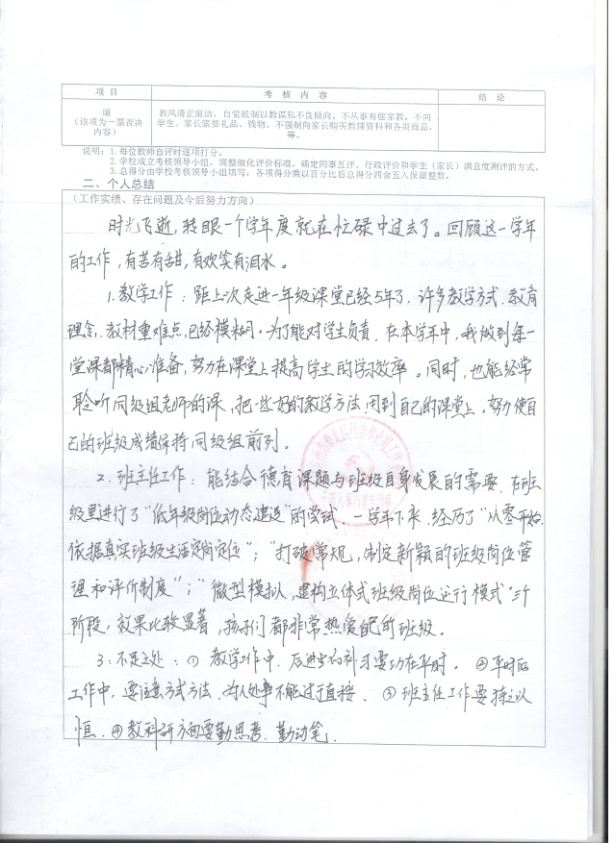 项 目 考 核 内 容 结 论
廉
(该项为一票否决
内容)
教风清正廉洁，自觉抵制以教谋私不良倾向，不从事有偿家教，不向
学生、家长索要礼品、钱物，不强制向家长购买教辅资料和各类商品，
等。
说明：1.每位教师自评时逐项打分。
2.学校成立考核领导小组，调整细化评价标准，确定同事互评、行政评价和学生（家长）满意度测评的方式。
3.总得分由学校考核领导小组填写，各项得分乘以百分比后总得分四舍五入保留整数。
二、个人总结
（工作实绩、存在问题及今后努力方向）
时光飞逝，转眼一个学年度就在忙碌中过去了。回顾这一学年
的工作，有苦有甜，有欢笑有泪水。
1.教学工作：距上次走进一年级课堂已经5年了，许多教学方式、教育
理念、教材重难点，已经模糊，为了能对学生负责，在本学年中，我做到每一
堂课都精心准备，努力在课堂上提高学生的学习效率。同时，也能经常
聆听同级组老师的课，把一些好的教学方法用到自己的课堂上，努力使自
己的班级成绩保持同级组前列。
2.班主任工作：能结合德育课题与班级自身发展的需要，在班
级里进行了“低年级岗位动态建设”的尝试，一学年下来，经历了“从零开始，
依据真实班级生活定岗定位”；“打破常规，制定新颖的班级岗位管
理和评价制度”；“微型模拟，建构立体式班级岗位运行模式”三个
阶段，效果比较显著，孩子们都非常热爱自己的班级。
3.不足之处：①教学工作中，后进生的补习要功在平时。②平时的
工作中，要注意方式方法，为人处事不能过于直接。③班主任工作要持之以
恒。④教科研方面要勤思考，勤动笔.